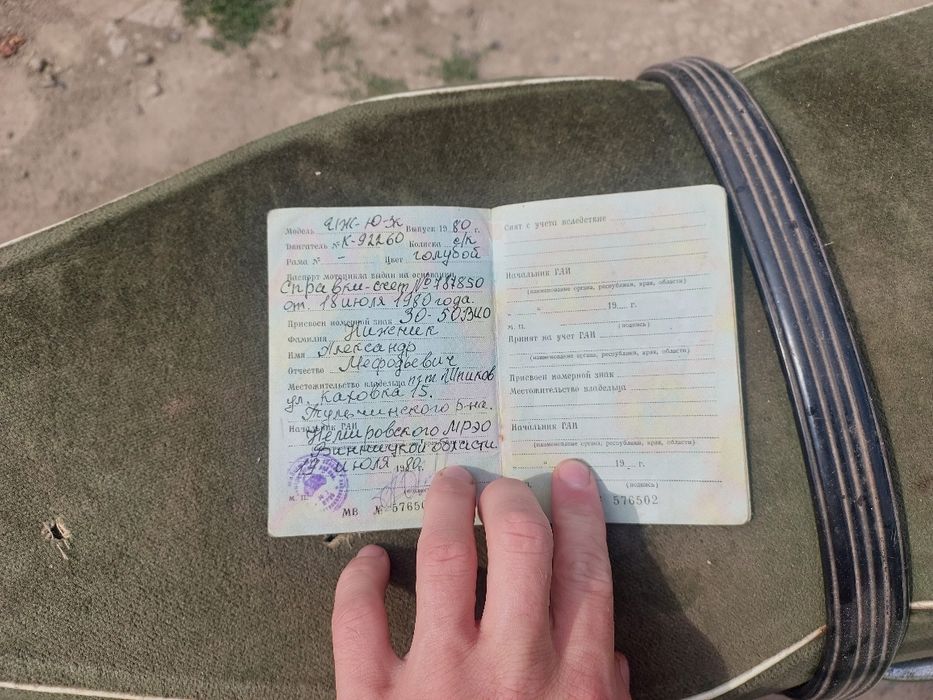 Модель ИЖ-Ю-К Выпуск 1980 г.
Двигатель № К-92260 Коляска б/к
Рама № - Цвет голубой
Паспорт мотоцикла выдан на основании
Справки-счет № 787850
от 18 июля 1980 года.
Присвоен номерной знак 30-50 ВИО
Фамилия Нижник
Имя Александр
Отчество Мефодьевич
Местожительство владельца пгт Шпиков
ул. Каховка 15.
Тульчинского р-на.
Начальник ГАИ
Немировского МРЭО
Винницкой области
19 июля 1980г.
М. П.
МВ № 57650
Снят с учета вследствие
Начальник ГАИ
(наименование органа, республики, края, области)
" 19 г.
М. П. (подпись)
Принят на учет ГАИ
(наименование органа, республики, края, области)
Присвоен номерной знак
Местожительство владельца
Начальник ГАИ
(наименование органа, республики, края, области)
" 19 г.
(подпись)
576502